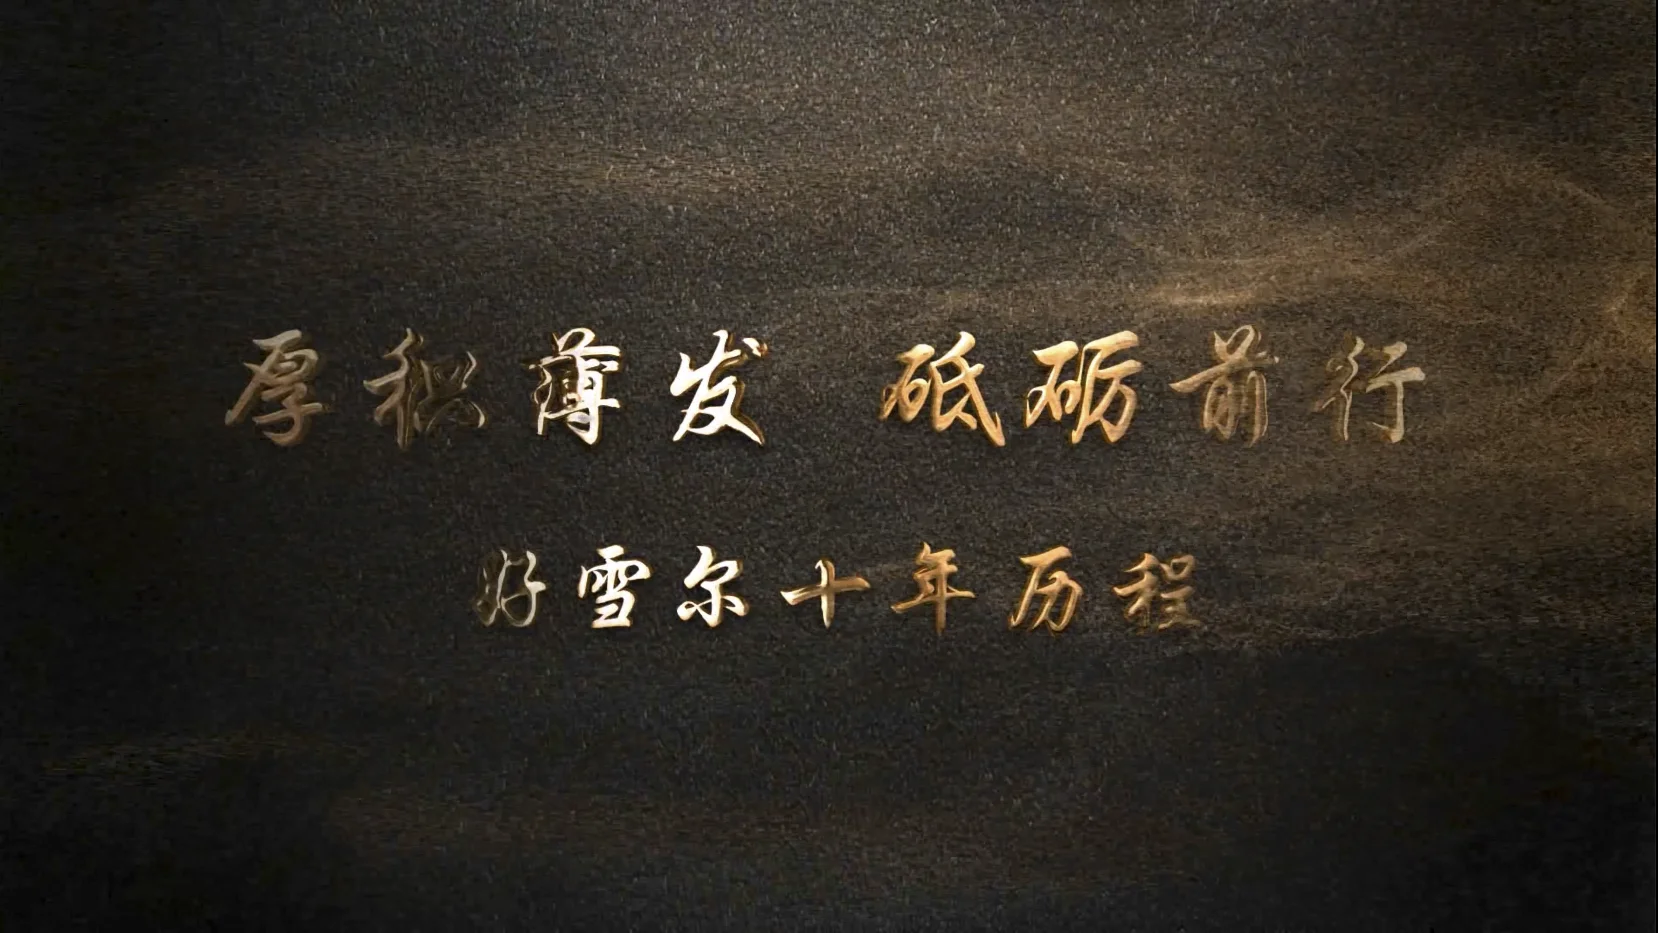 厚积薄发 砥砺前行
好雪尔十年历程